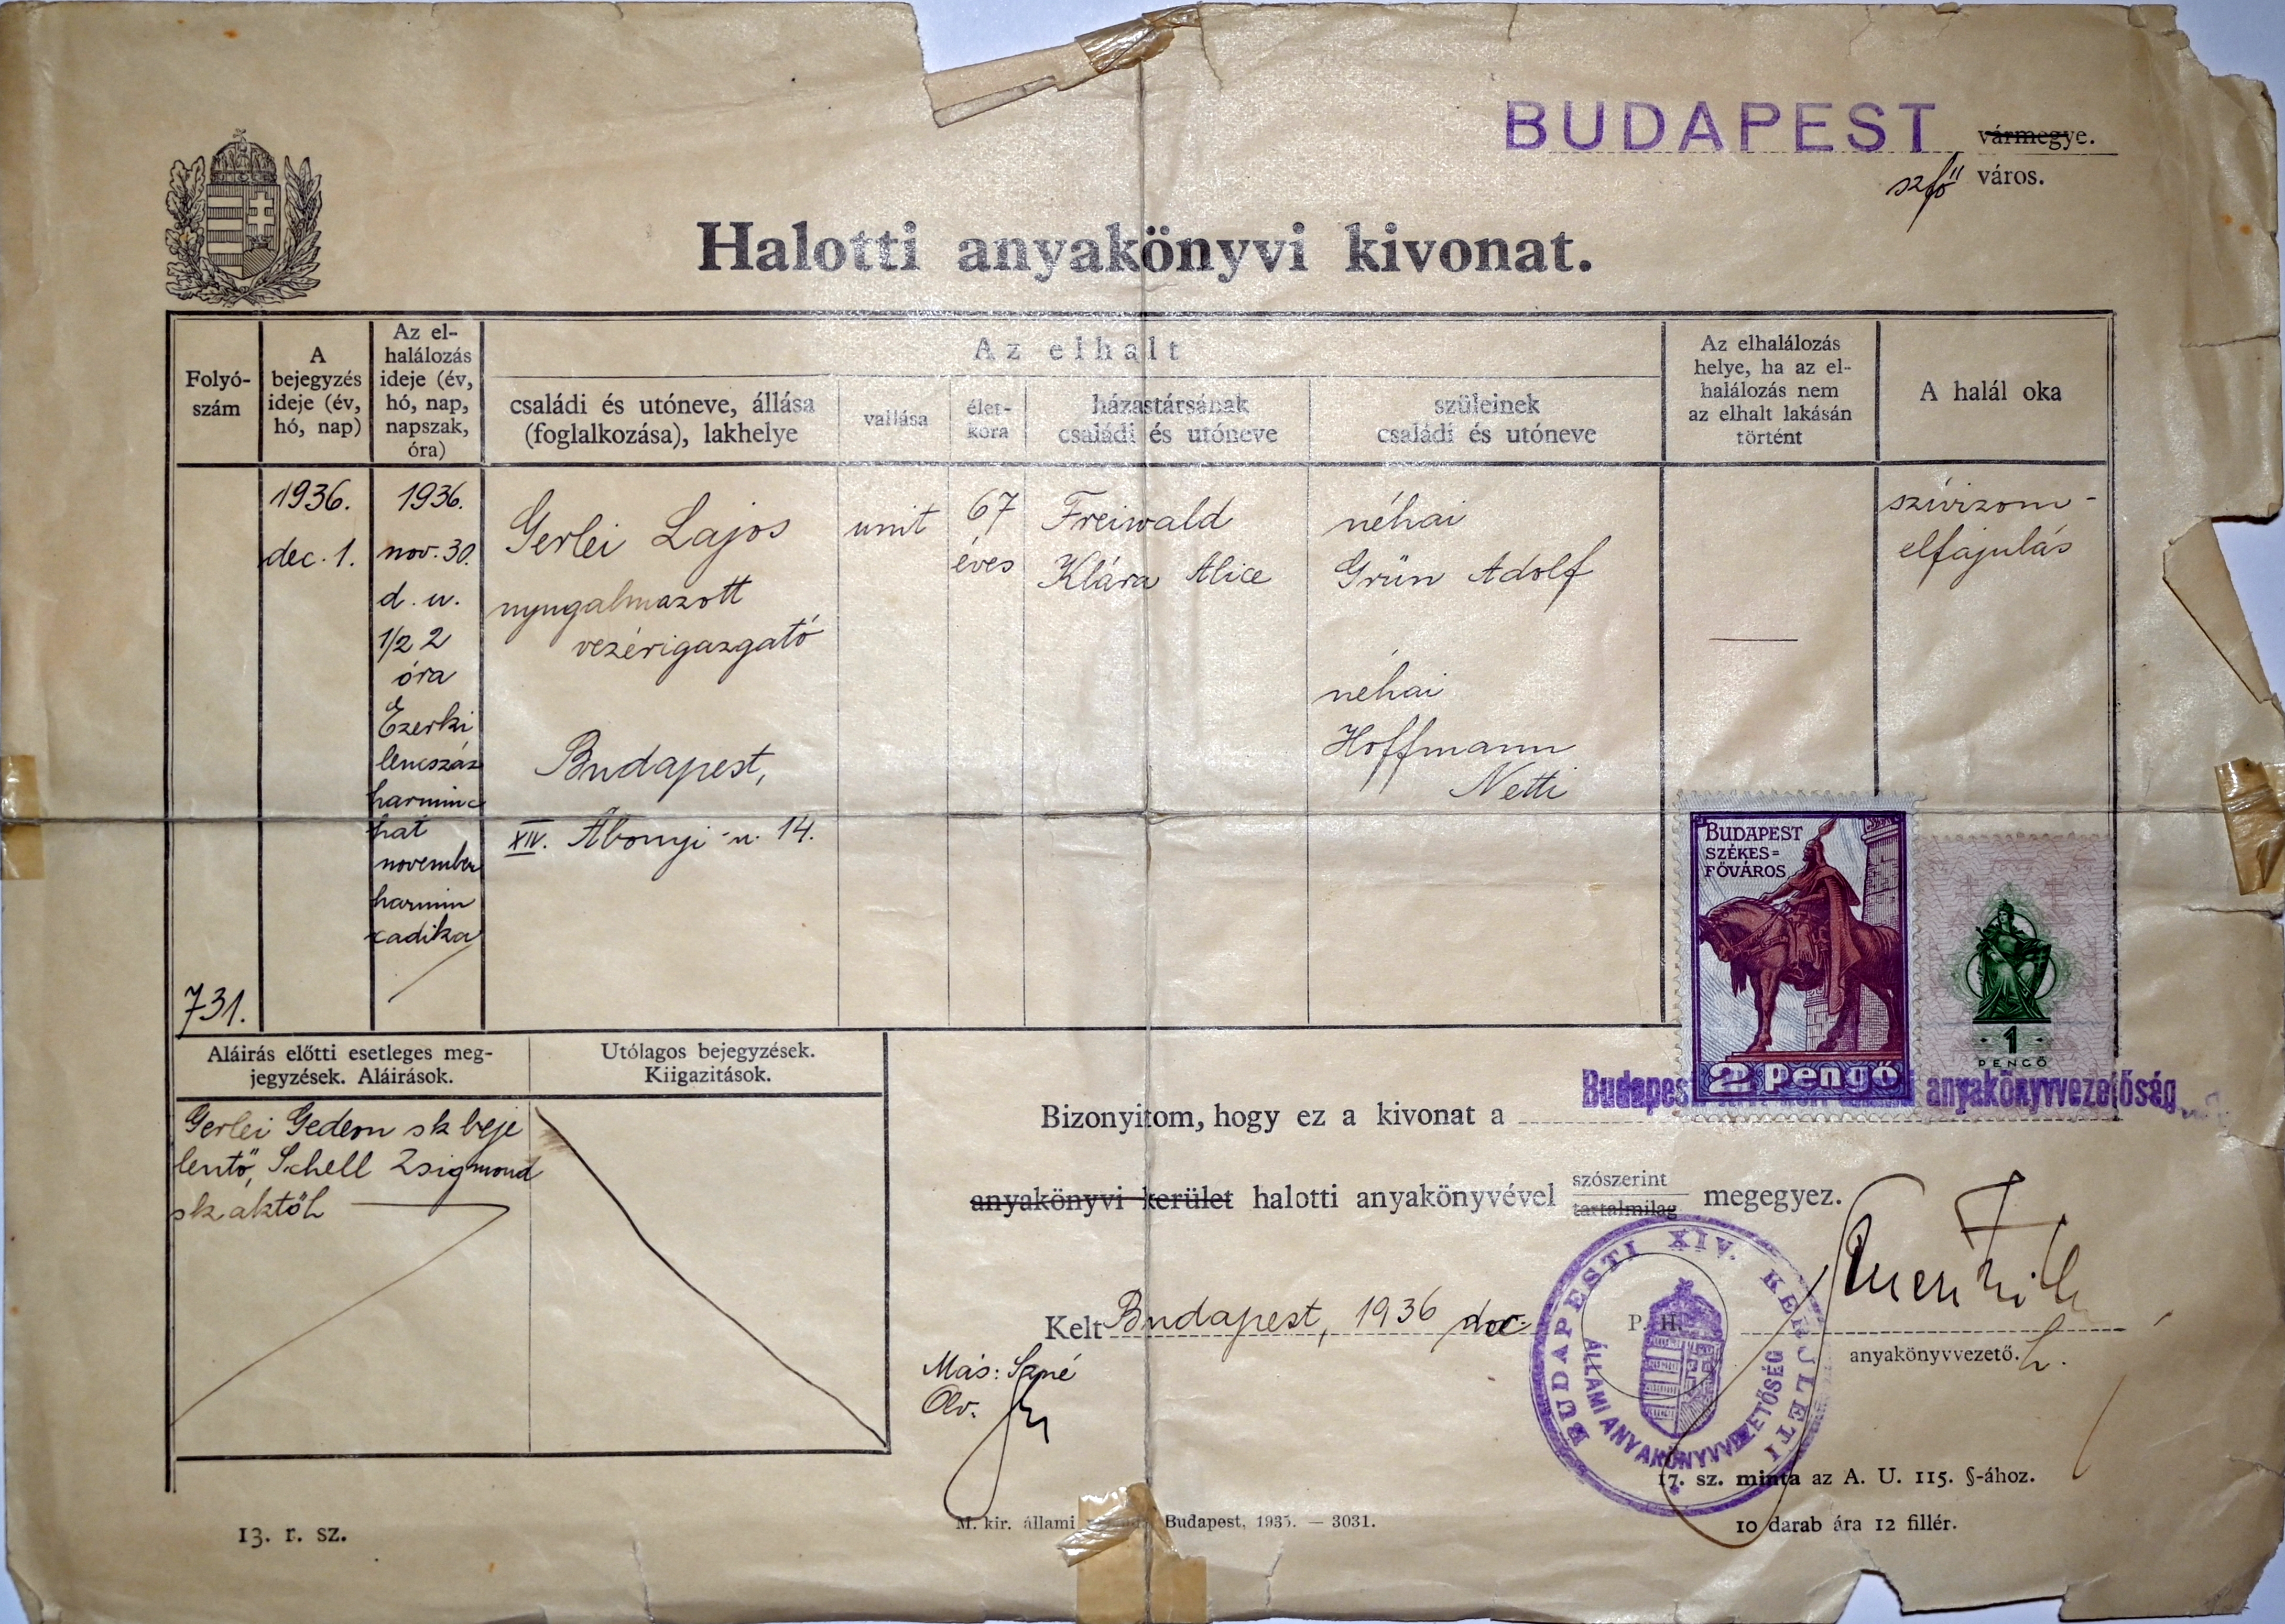 BUDAPEST vármegye.
szfő város.
Halotti anyakönyvi kivonat.
Folyó-
szám
A
bejegyzés
ideje (év,
hó, nap)
Az el-
halálozás
ideje (év,
hó, nap,
napszak,
óra)
Az elhalt
családi és utóneve, állása
(foglalkozása), lakhelye
vallása
élet-
kora
házastársának
családi és utóneve
szüleinek
családi és utóneve
Az elhalálozás
helye, ha az el-
halálozás nem
az elhalt lakásán
történt
A halál oka
731.
1936.
dec. 1.
1936.
nov. 30.
d. u.
1/2 2
óra
Ezerki
lencszáz
harminc
hat
november
harmin
cadika
Gerlei Lajos
nyugalmazott
vezérigazgató
Budapest,
XIV. Abonyi-u. 14.
unit
67
éves
Freiwald
Klára Alice
néhai
Grün Adolf
néhai
Hoffmann
Netti
—
szívizom-
elfajulás
BUDAPEST
SZÉKES=
FŐVÁROS
2 Pengő
1
PENGŐ
Aláirás előtti esetleges meg-
jegyzések. Aláirások.
Utólagos bejegyzések.
Kiigazitások.
Gerlei Gedeon sk beje
lentő, Schell Zsigmond
sk aktőh
Bizonyitom, hogy ez a kivonat a Budapest anyakönyvvezetőség
anyakönyvi kerület halotti anyakönyvével szószerint tartalmilag megegyez.
Kelt Budapest, 1936 dec.
P. H.
anyakönyvvezető. h.
BUDAPESTI XIV. KERÜLETI
ÁLLAMI ANYAKÖNYVVEZETŐSÉG
Más: Sané
Olv.
17. sz. minta az A. U. 115. §-ához.
13. r. sz.
M. kir. állami Budapest, 1935. — 3031.
10 darab ára 12 fillér.